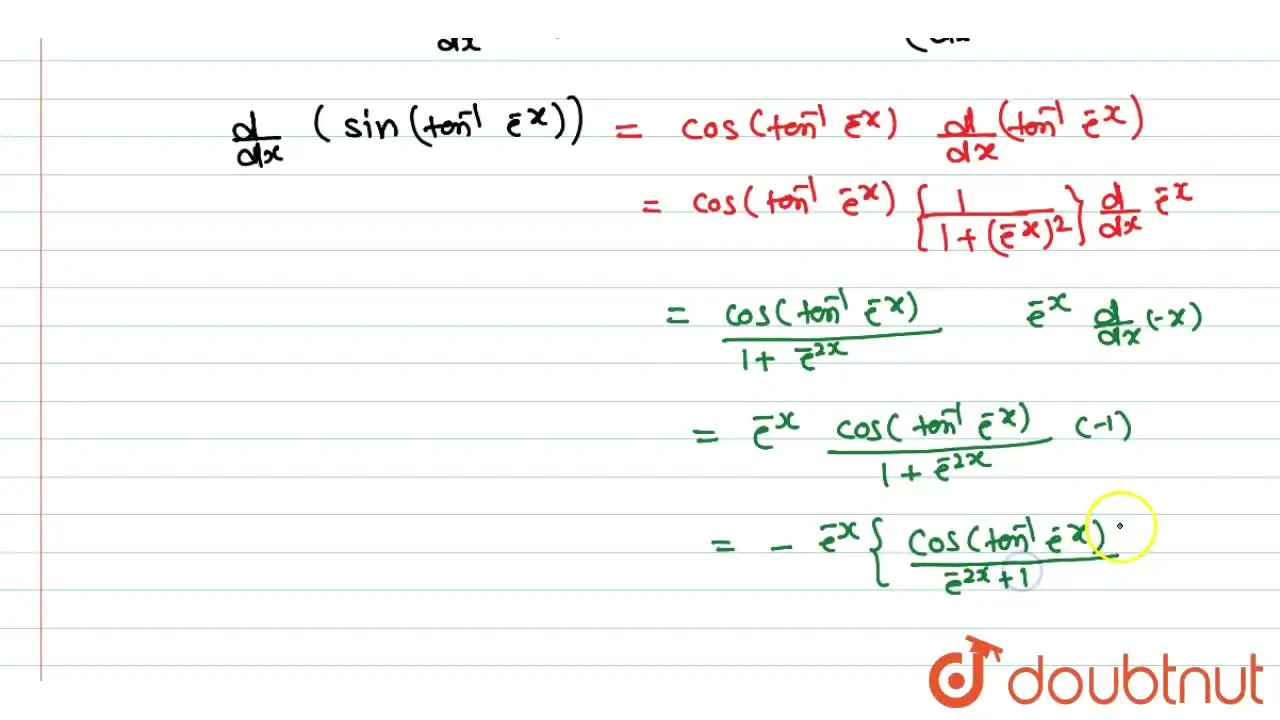 dx (dx
d/dx (sin(tan⁻¹ e⁻ˣ)) = cos(tan⁻¹ e⁻ˣ) d/dx (tan⁻¹ e⁻ˣ)
= cos(tan⁻¹ e⁻ˣ) {1/(1+(e⁻ˣ)²)} d/dx e⁻ˣ
= cos(tan⁻¹ e⁻ˣ)/(1+ e⁻²ˣ) e⁻ˣ d/dx (-x)
= e⁻ˣ cos(tan⁻¹ e⁻ˣ)/(1+ e⁻²ˣ) (-1)
= - e⁻ˣ { cos(tan⁻¹ e⁻ˣ)/(e⁻²ˣ+1)
doubtnut